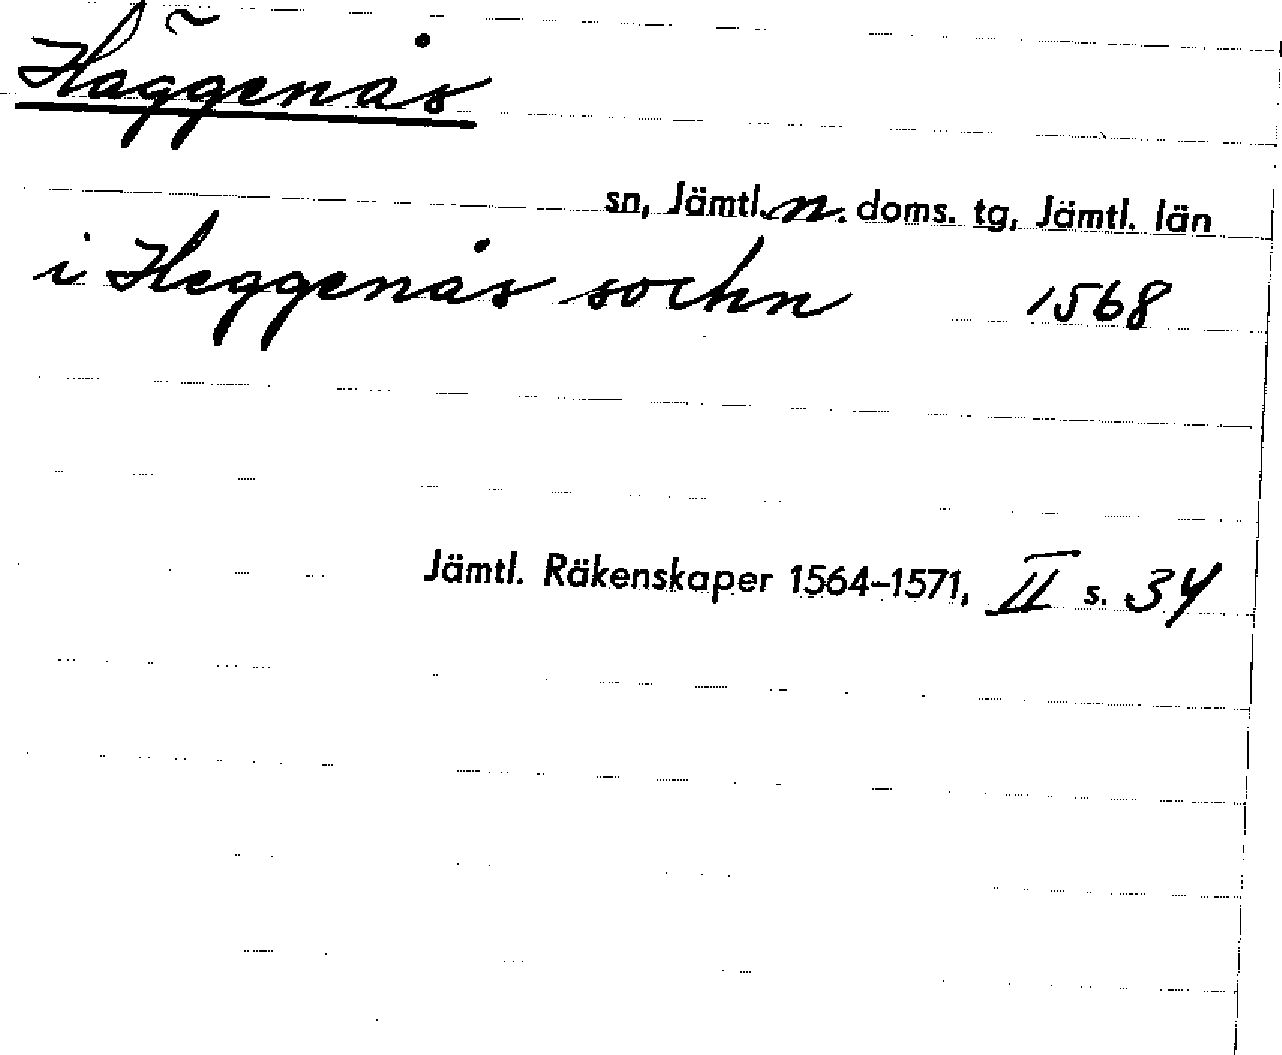 Häggenås
sn, Jämtl. n. doms. tg, Jämtl. län
i Heggenås sochn 1568
Jämtl. Räkenskaper 1564–1571, II s. 34